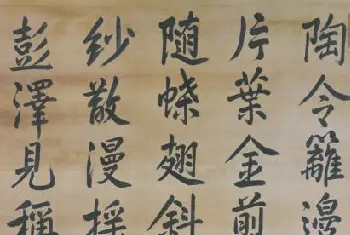 陶令籬邊
片葉金剪
隨蝶翅斜
紗散漫採
彭澤見稱